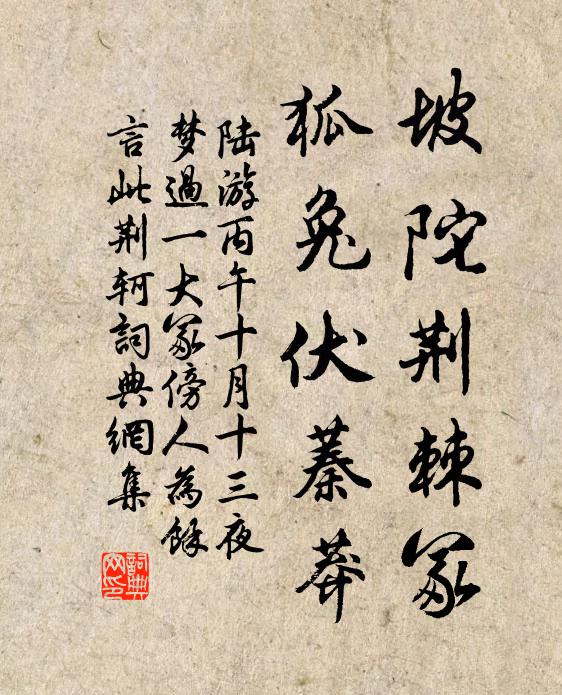 坡陀荆棘冢
狐兔伏蓁莽
陆游丙午十月十三夜
梦過一大冢傍人為餘
言此荆轲詞典網集
詞典网印